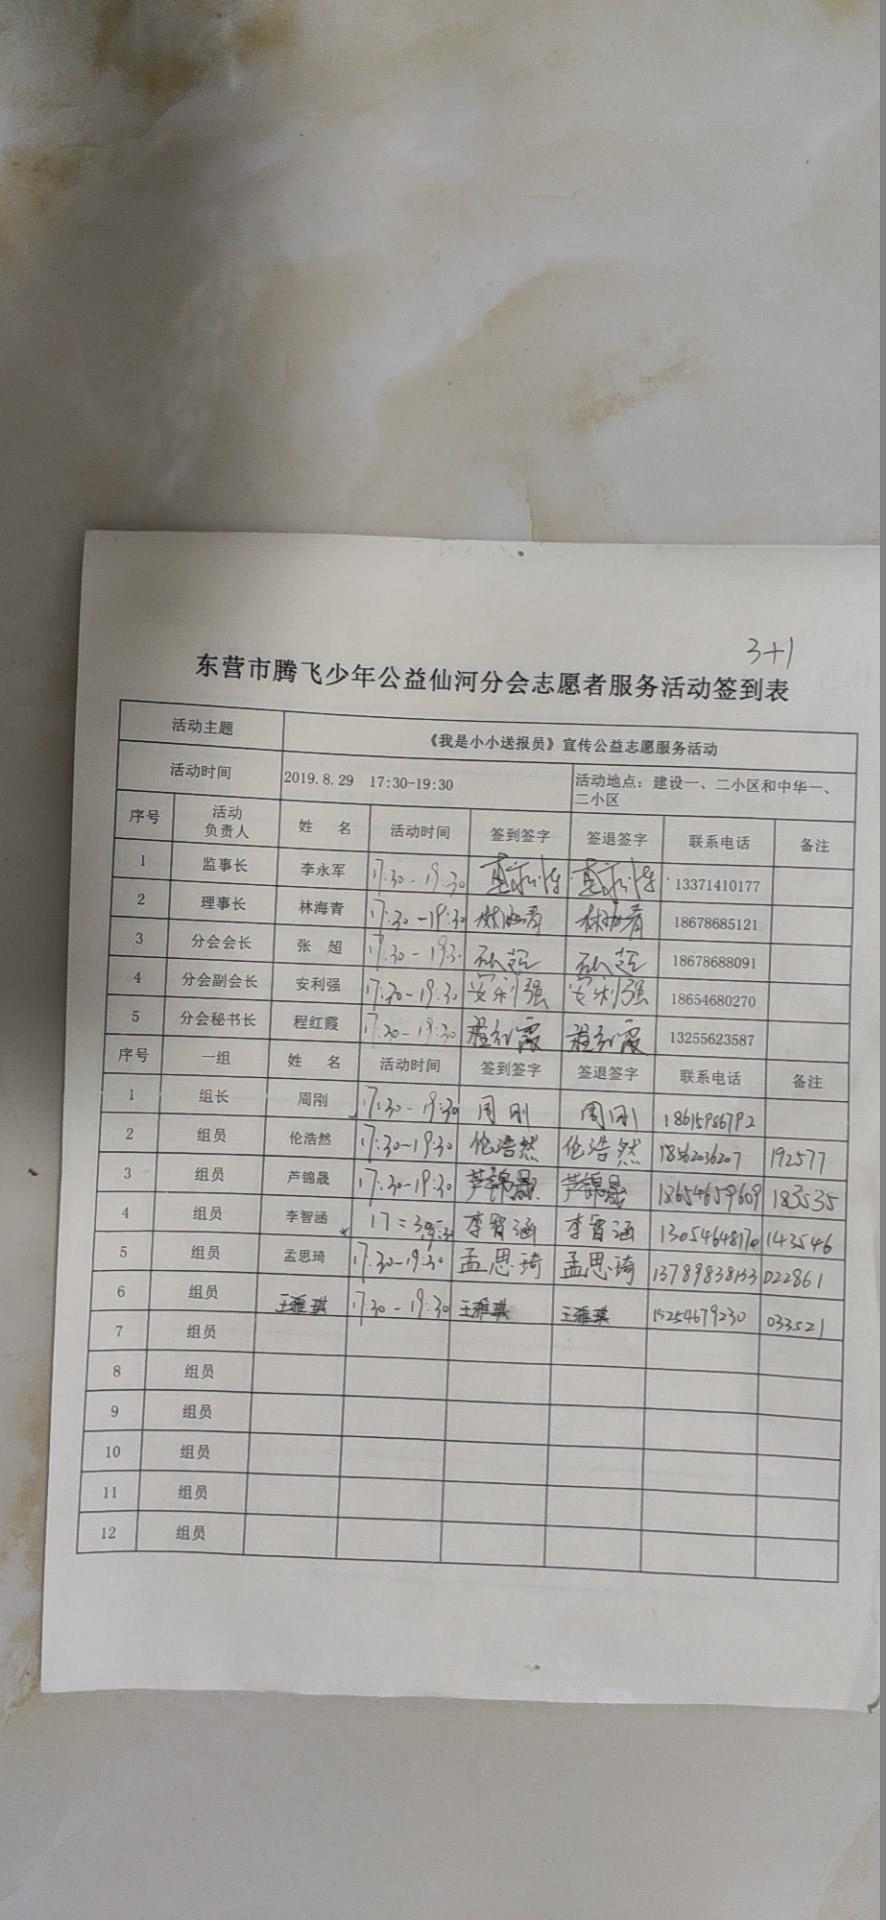 3+1
东营市腾飞少年公益仙河分会志愿者服务活动签到表
活动主题 《我是小小送报员》宣传公益志愿服务活动
活动时间 2019.8.29 17:30-19:30 活动地点：建设一、二小区和中华一、二小区
序号 活动负责人 姓 名 活动时间 签到签字 签退签字 联系电话 备注
1 监事长 李永军 17:30-19:30 13371410177
2 理事长 林海青 17:30-19:30 林海青 林海青 18678685121
3 分会会长 张 超 17:30-19:3 张超 张超 18678688091
4 分会副会长 安利强 17:30-19:30 安利强 安利强 18654680270
5 分会秘书长 程红霞 17:30-19:30 程红霞 程红霞 13255623587
序号 一组 姓 名 活动时间 签到签字 签退签字 联系电话 备注
1 组长 周刚 17:30-19:30 周刚 周刚 18615986792
2 组员 伦浩然 17:30-19:30 伦浩然 伦浩然 18562036207 192577
3 组员 芦锦晟 17:30-19:30 芦锦晟 芦锦晟 18654659609 183535
4 组员 李智涵 李智涵 李智涵 13054648170 143546
5 组员 孟思琦 17:30-19:30 孟思琦 孟思琦 13789838133 022861
6 组员 王雅琪 17:30-19:30 王雅琪 王雅琪 15254679230 033521
7 组员
8 组员
9 组员
10 组员
11 组员
12 组员